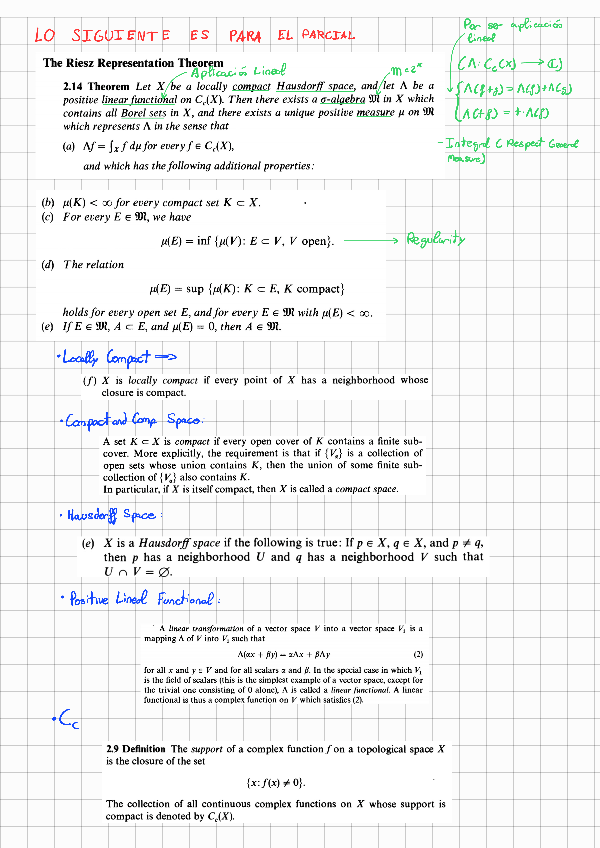 LO SIGUIENTE ES PARA EL PARCIAL
Por ser aplicación
lineal
(Λ: Cc(X) → ℂ)
Λ(f+g) = Λ(f)+Λ(g)
Λ(t f) = t · Λ(f)
- Integral (Respect General
Measure)
The Riesz Representation Theorem
Aplicació Lineal
m=2ˣ
2.14 Theorem Let X be a locally compact Hausdorff space, and let Λ be a
positive linear functional on Cc(X). Then there exists a σ-algebra 𝔐 in X which
contains all Borel sets in X, and there exists a unique positive measure μ on 𝔐
which represents Λ in the sense that
(a) Λf = ∫X f dμ for every f ∈ Cc(X),
and which has the following additional properties:
(b) μ(K) < ∞ for every compact set K ⊂ X.
(c) For every E ∈ 𝔐, we have
μ(E) = inf {μ(V): E ⊂ V, V open}.
→ Regularity
(d) The relation
μ(E) = sup {μ(K): K ⊂ E, K compact}
holds for every open set E, and for every E ∈ 𝔐 with μ(E) < ∞.
(e) If E ∈ 𝔐, A ⊂ E, and μ(E) = 0, then A ∈ 𝔐.
· Locally Compact ⇒
(f) X is locally compact if every point of X has a neighborhood whose
closure is compact.
· Compact and Comp. Space:
A set K ⊂ X is compact if every open cover of K contains a finite sub-
cover. More explicitly, the requirement is that if {Vα} is a collection of
open sets whose union contains K, then the union of some finite sub-
collection of {Vα} also contains K.
In particular, if X is itself compact, then X is called a compact space.
· Hausdorff Space:
(e) X is a Hausdorff space if the following is true: If p ∈ X, q ∈ X, and p ≠ q,
then p has a neighborhood U and q has a neighborhood V such that
U ∩ V = ∅.
· Positive Lineal Functional:
A linear transformation of a vector space V into a vector space V₁ is a
mapping Λ of V into V₁ such that
Λ(αx + βy) = αΛx + βΛy (2)
for all x and y ∈ V and for all scalars α and β. In the special case in which V₁
is the field of scalars (this is the simplest example of a vector space, except for
the trivial one consisting of 0 alone), Λ is called a linear functional. A linear
functional is thus a complex function on V which satisfies (2).
· Cc
2.9 Definition The support of a complex function f on a topological space X
is the closure of the set
{x: f(x) ≠ 0}.
The collection of all continuous complex functions on X whose support is
compact is denoted by Cc(X).